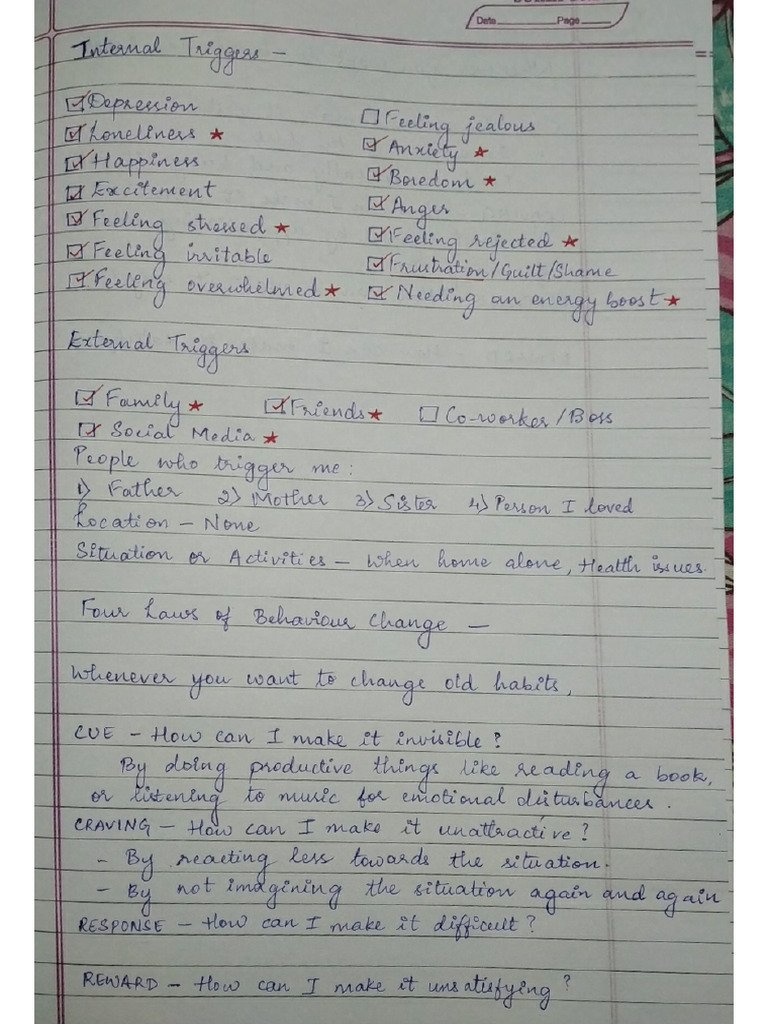 Date Page
Internal Triggers –
☑ Depression
☑ Loneliness ★
☑ Happiness
☑ Excitement
☑ Feeling stressed ★
☑ Feeling irritable
☑ Feeling overwhelmed ★
☐ Feeling jealous
☑ Anxiety ★
☑ Boredom ★
☑ Anger
☑ Feeling rejected ★
☑ Frustration/Guilt/Shame
☑ Needing an energy boost ★
External Triggers
☑ Family ★ ☑ Friends ★ ☐ Co-worker/Boss
☑ Social Media ★
People who trigger me :
1) Father 2) Mother 3) Sister 4) Person I loved
Location – None
Situation or Activities – When home alone, Health issues.
Four Laws of Behaviour Change –
Whenever you want to change old habits,
CUE – How can I make it invisible?
By doing productive things like reading a book,
or listening to music for emotional disturbances.
CRAVING – How can I make it unattractive?
– By reacting less towards the situation.
– By not imagining the situation again and again
RESPONSE – How can I make it difficult?
REWARD – How can I make it unsatisfying?